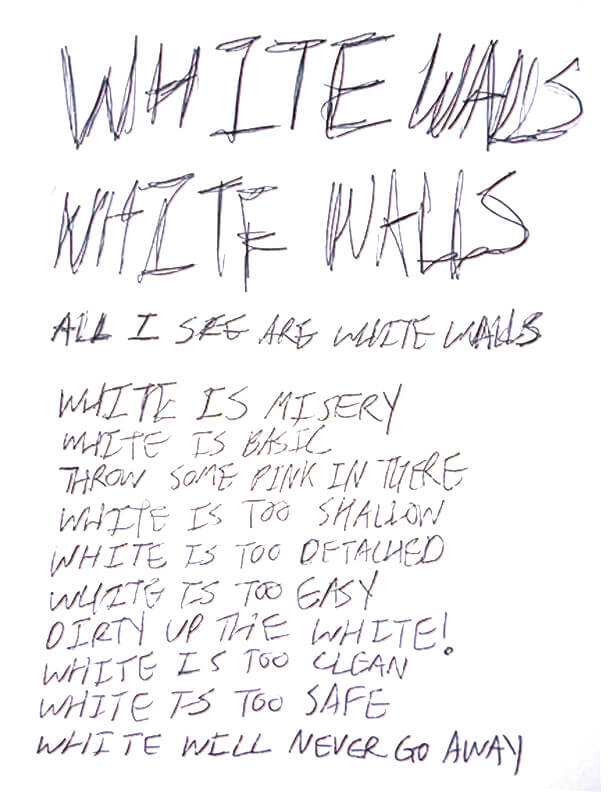 WHITE WALLS
WHITE WALLS
ALL I SEE ARE WHITE WALLS
WHITE IS MISERY
WHITE IS BASIC
THROW SOME PINK IN THERE
WHITE IS TOO SHALLOW
WHITE IS TOO DETACHED
WHITE IS TOO EASY
DIRTY UP THE WHITE!
WHITE IS TOO CLEAN
WHITE IS TOO SAFE
WHITE WILL NEVER GO AWAY